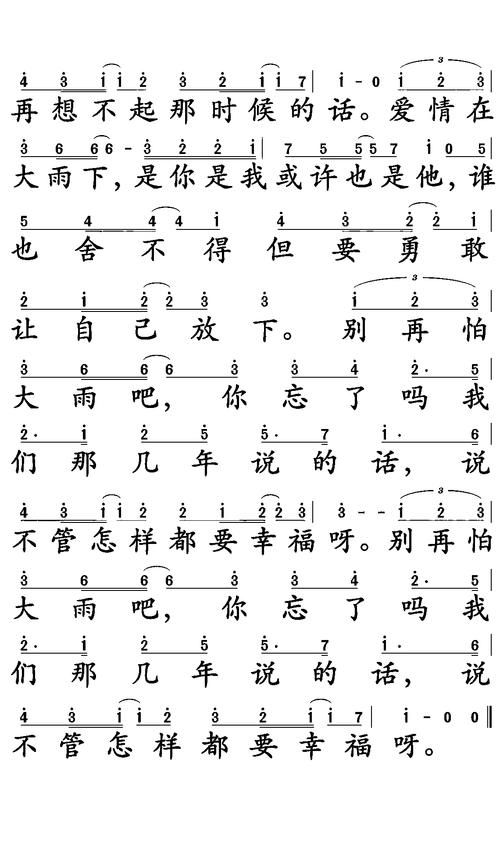 4 3 1 1 2 3 2 1 1 7 | 1 - 0 1 2 3 |
再想不起那时候的话。爱情在
3 6 6 6 - 3 2 2 1 | 7 5 5 5 7 1 0 5 |
大雨下，是你是我或许也是他，谁
5 4 4 4 1 4 3 2 2 1 |
也舍不得但要勇敢
2 1 2 2 3 3 1 2 3 |
让自己放下。别再怕
3 6 6 6 3 3 4 2· 5 |
大雨吧，你忘了吗我
2· 1 2 5 5· 7 1· 6 |
们那几年说的话，说
4 3 1 1 2 2 1 2 2 3 | 3 - - 1 2 3 |
不管怎样都要幸福呀。别再怕
3 6 6 6 3 3 4 2· 5 |
大雨吧，你忘了吗我
2· 1 2 5 5· 7 1· 6 |
们那几年说的话，说
4 3 1 1 2 3 2 1 1 7 | 1 - 0 0 ‖
不管怎样都要幸福呀。